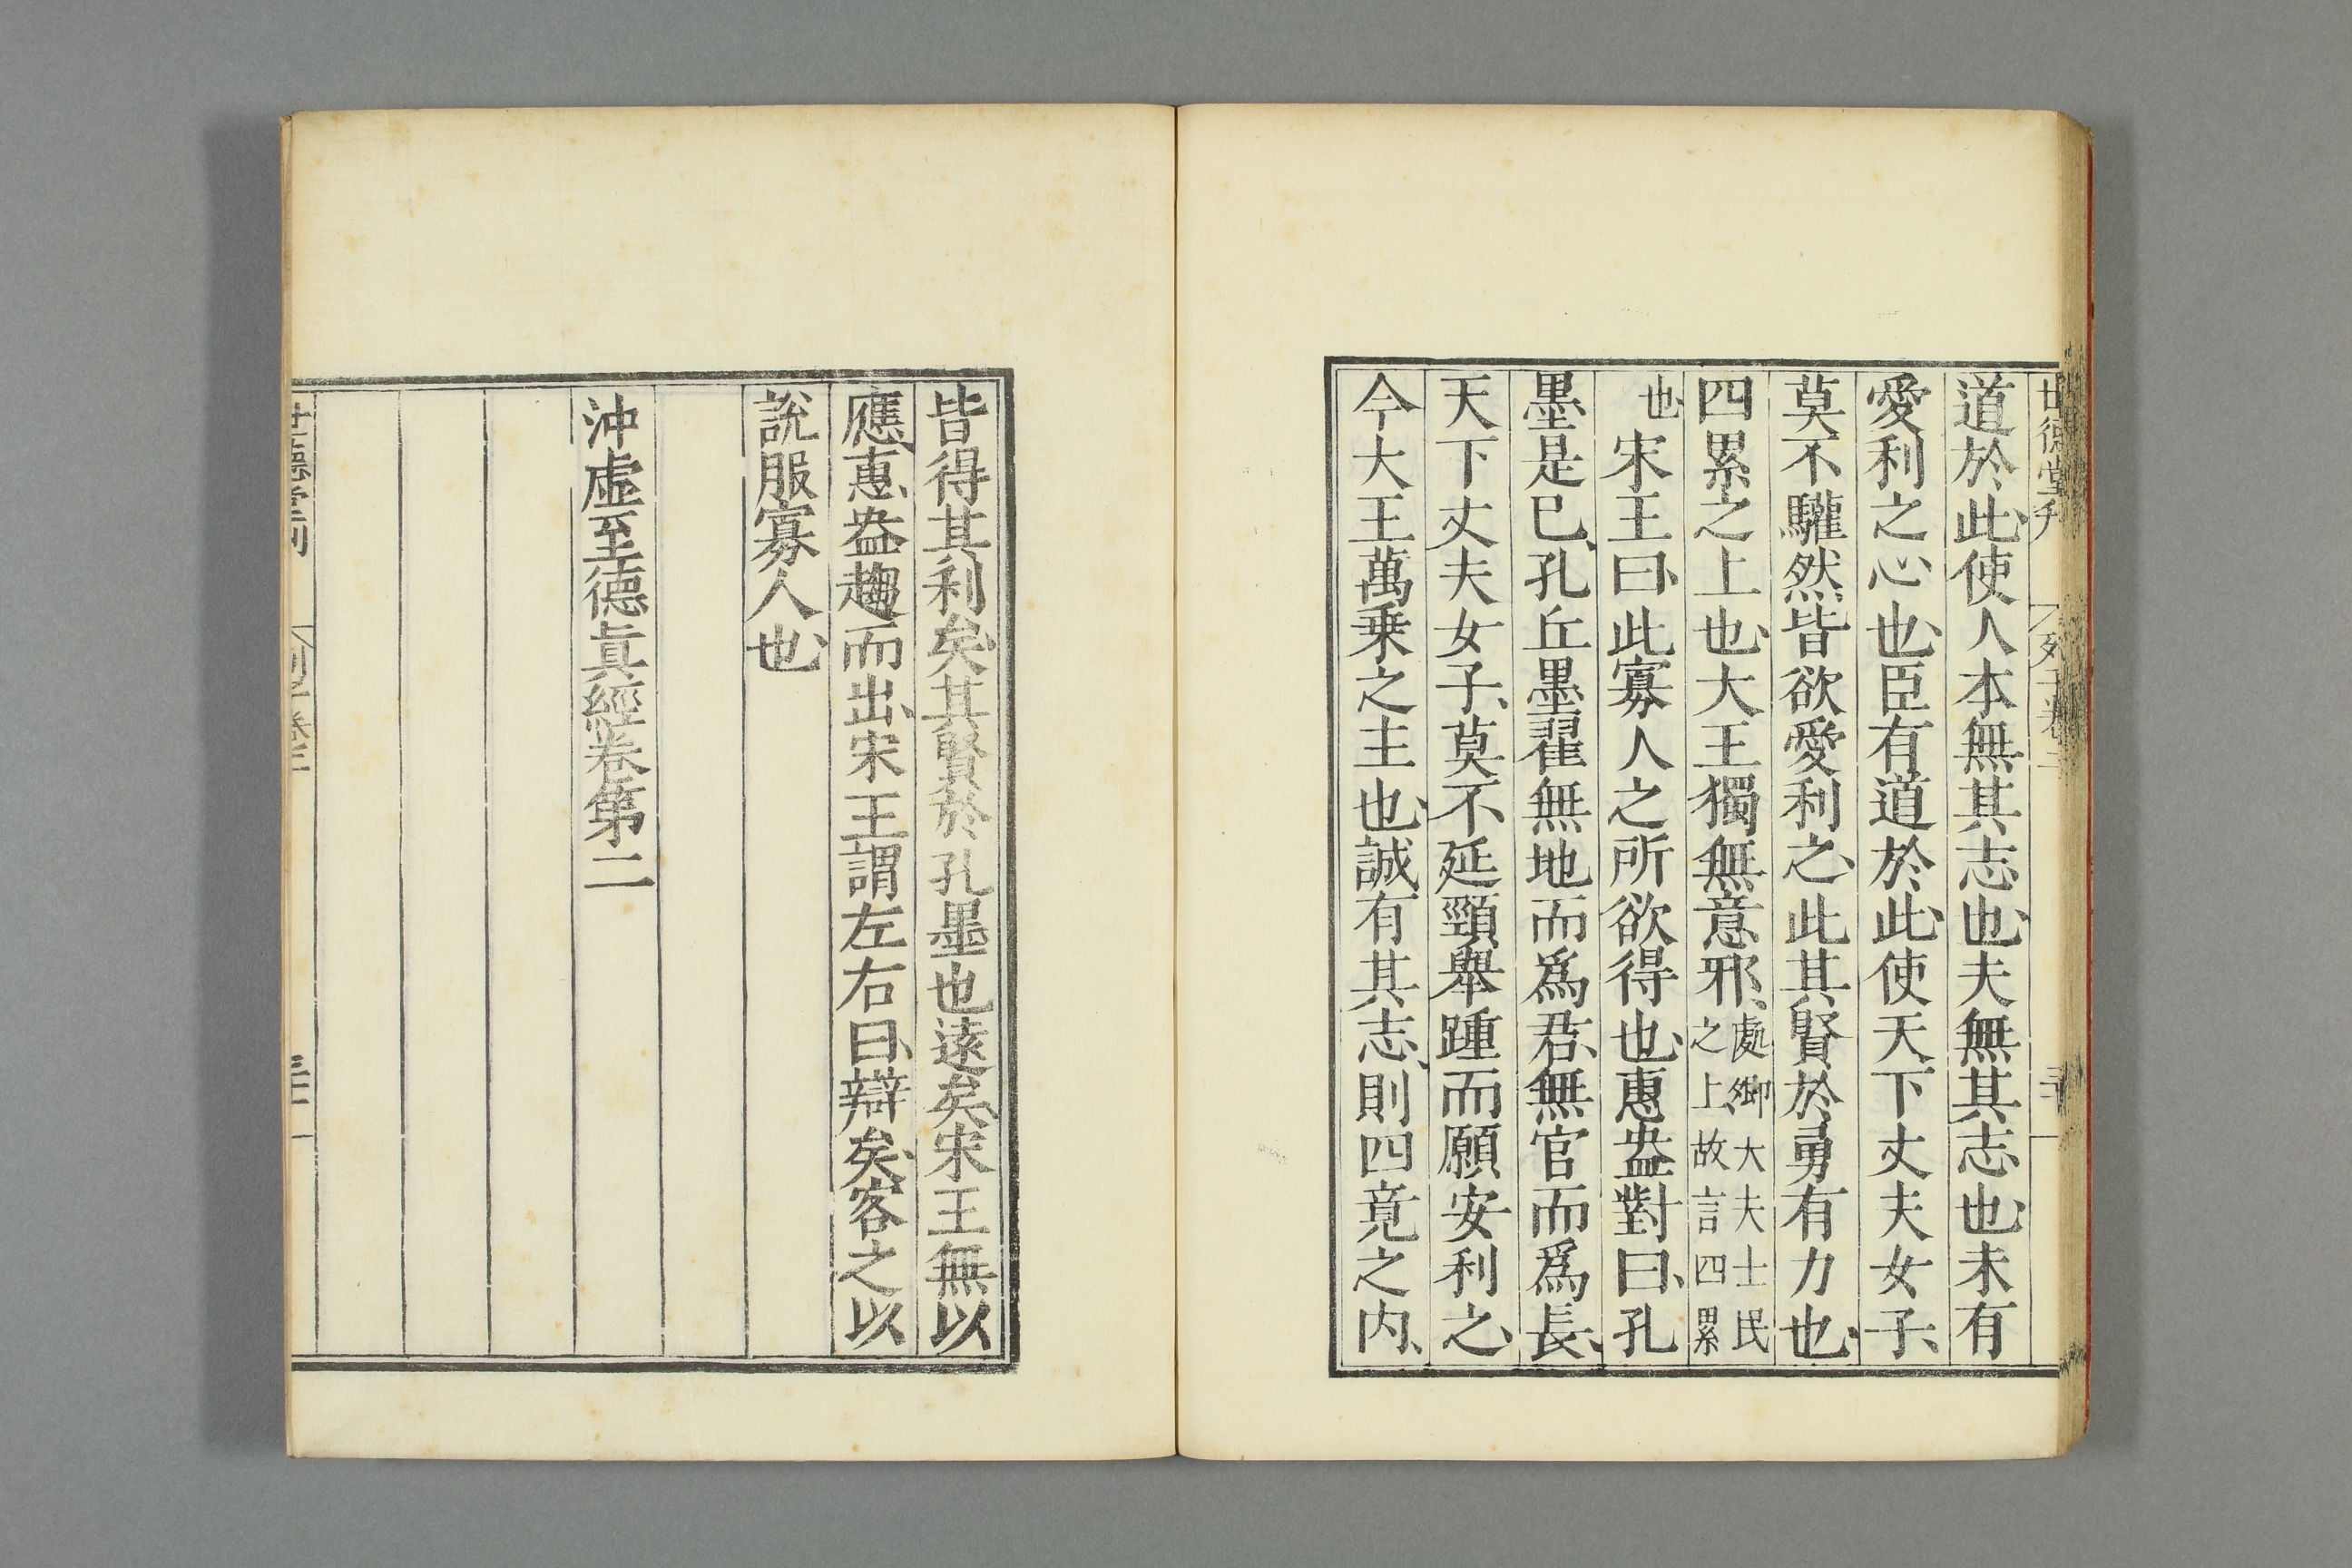 世德堂刊 列子卷二 三十
道於此、使人本無其志也、夫無其志也、未有
愛利之心也、臣有道於此、使天下丈夫女子、
莫不驩然、皆欲愛利之、此其賢於勇有力也、
四累之上也、大王獨無意邪、處卿大夫士民之上故言四累
也、宋王曰、此寡人之所欲得也、惠盎對曰、孔
墨是已、孔丘墨翟無地而爲君、無官而爲長、
天下丈夫女子、莫不延頸舉踵而願安利之、
今大王萬乗之主也、誠有其志、則四竟之内、
皆得其利矣、其賢於孔墨也遠矣、宋王無以
應、惠盎趨而出、宋王謂左右曰、辯矣、客之以
說服寡人也、
沖虛至德眞經卷第二